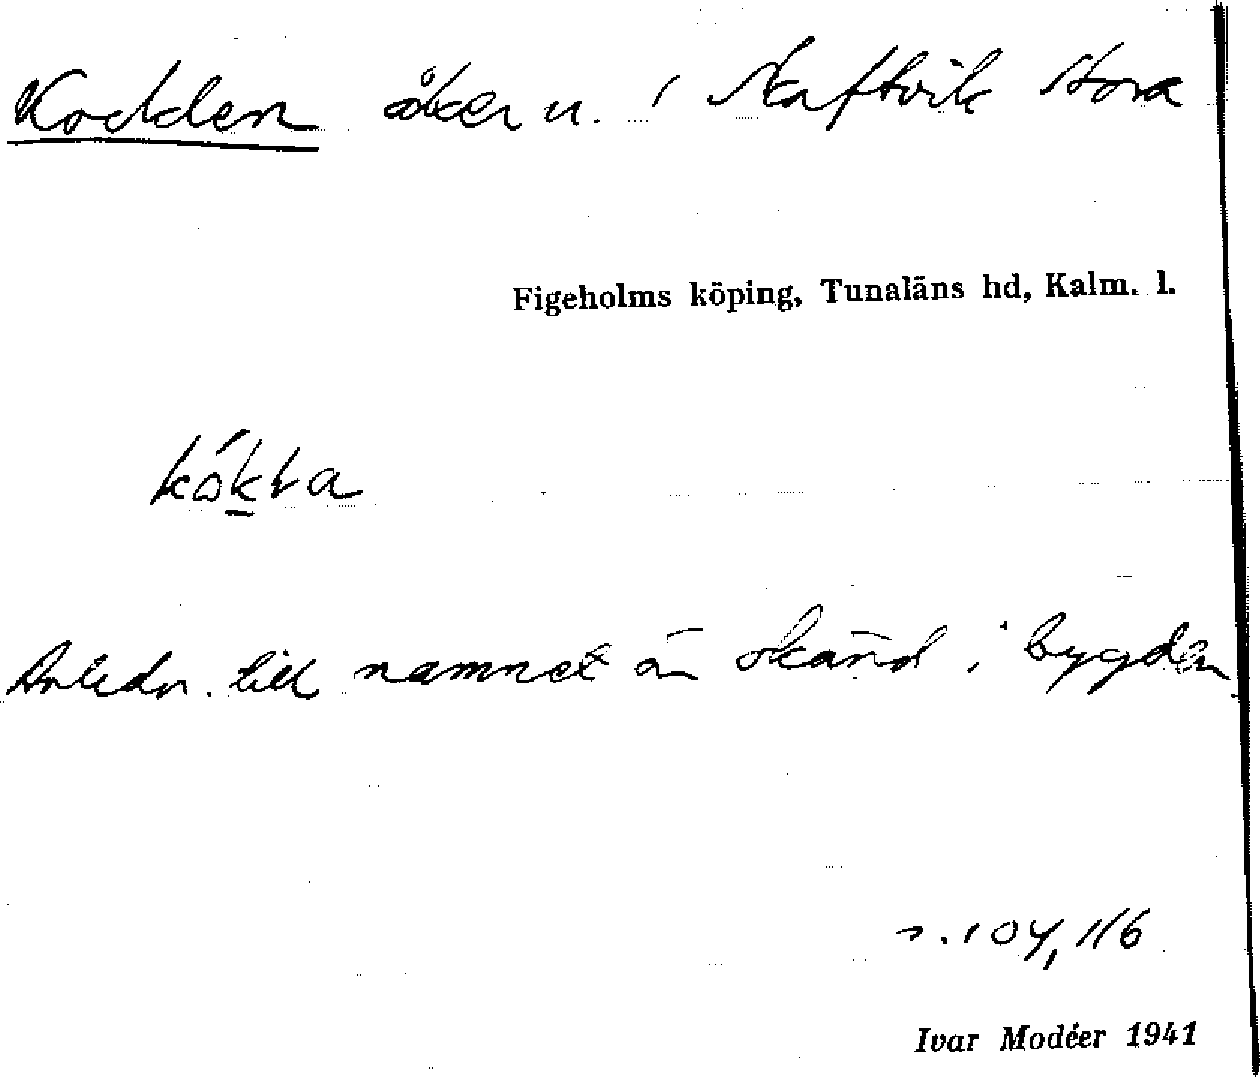 Kodden åkern. i Skaftvik Stora
Figeholms köping, Tunaläns hd, Kalm. l.
Anledn. till namnet är okänd i bygden
s. 104, 116
Ivar Modéer 1941